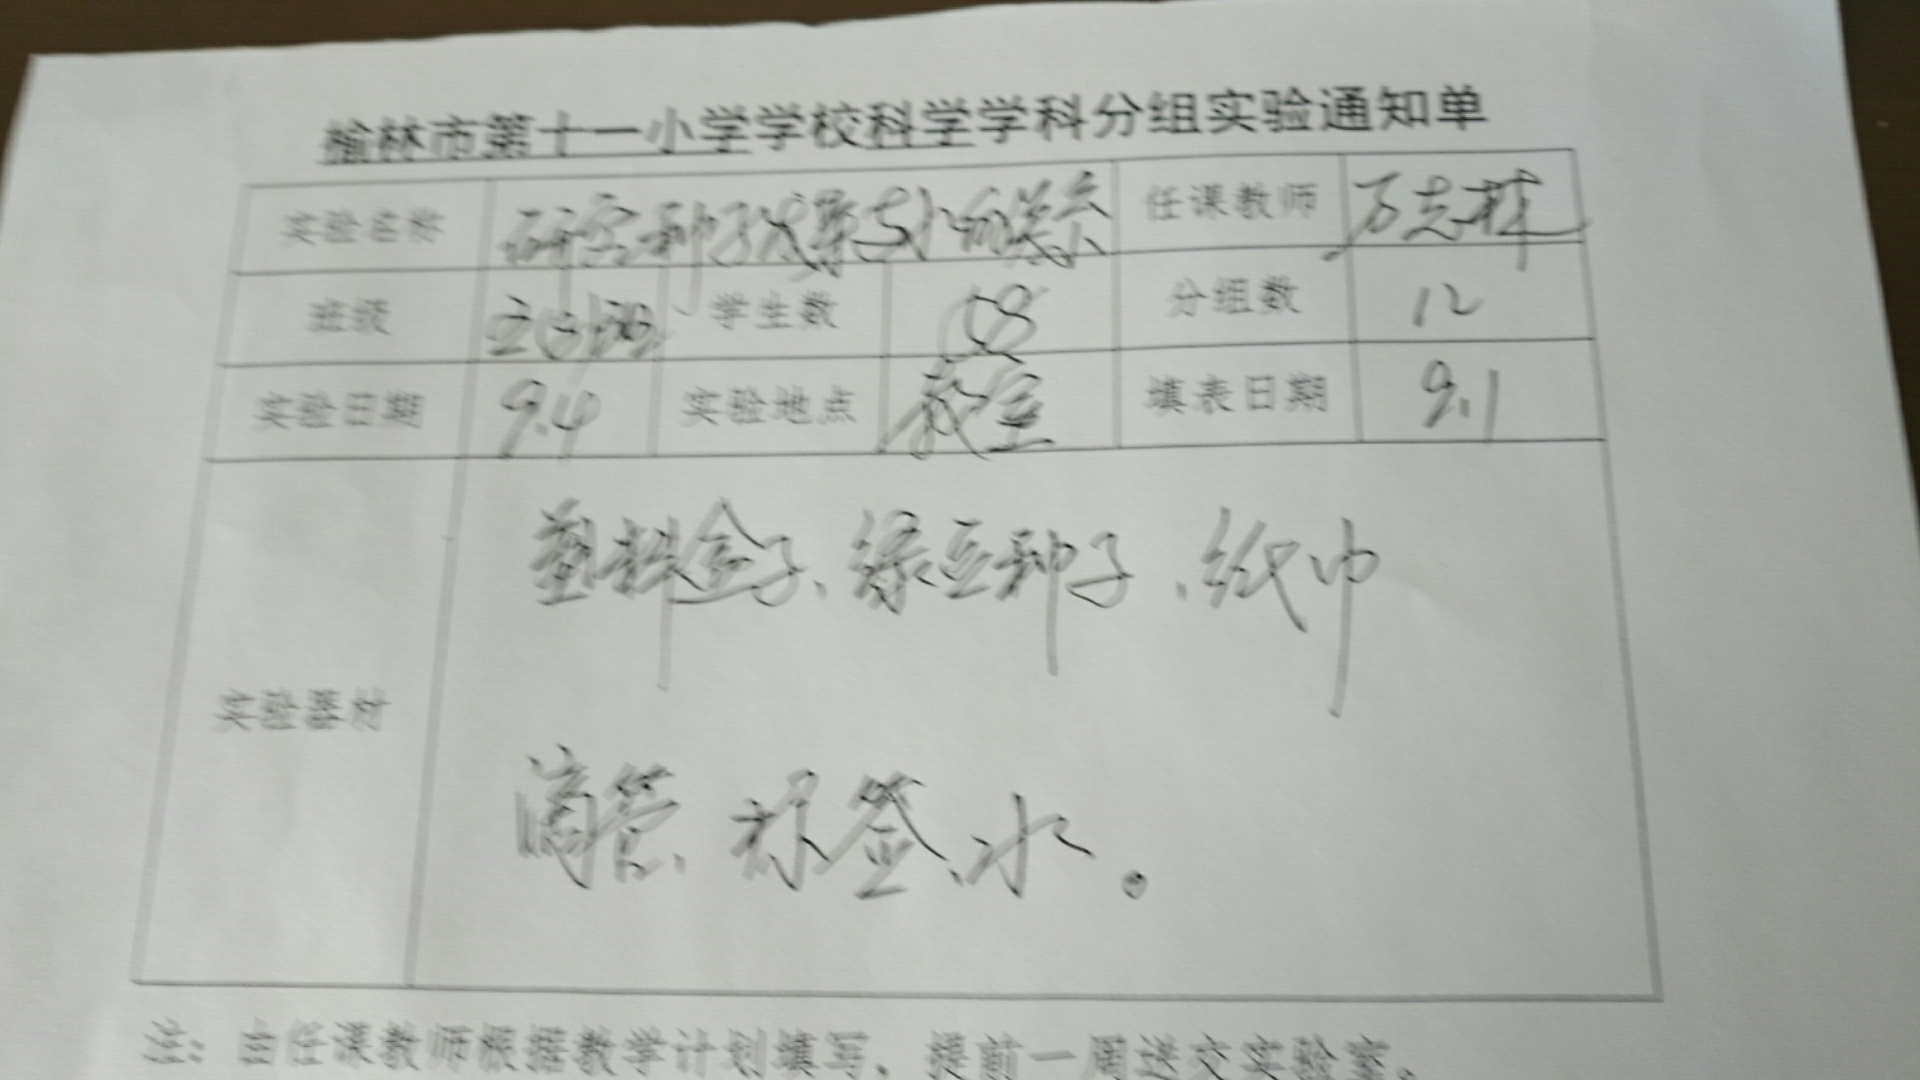 榆林市第十一小学学校科学学科分组实验通知单
实验名称 研究种子发芽与水的关系 任课教师 万志林
班级 学生数 58 分组数 12
实验日期 9.4 实验地点 教室 填表日期 9.1
实验器材
塑料盒子、绿豆种子、纸巾
滴管、标签、水。
注：由任课教师根据教学计划填写，提前一周送交实验室。